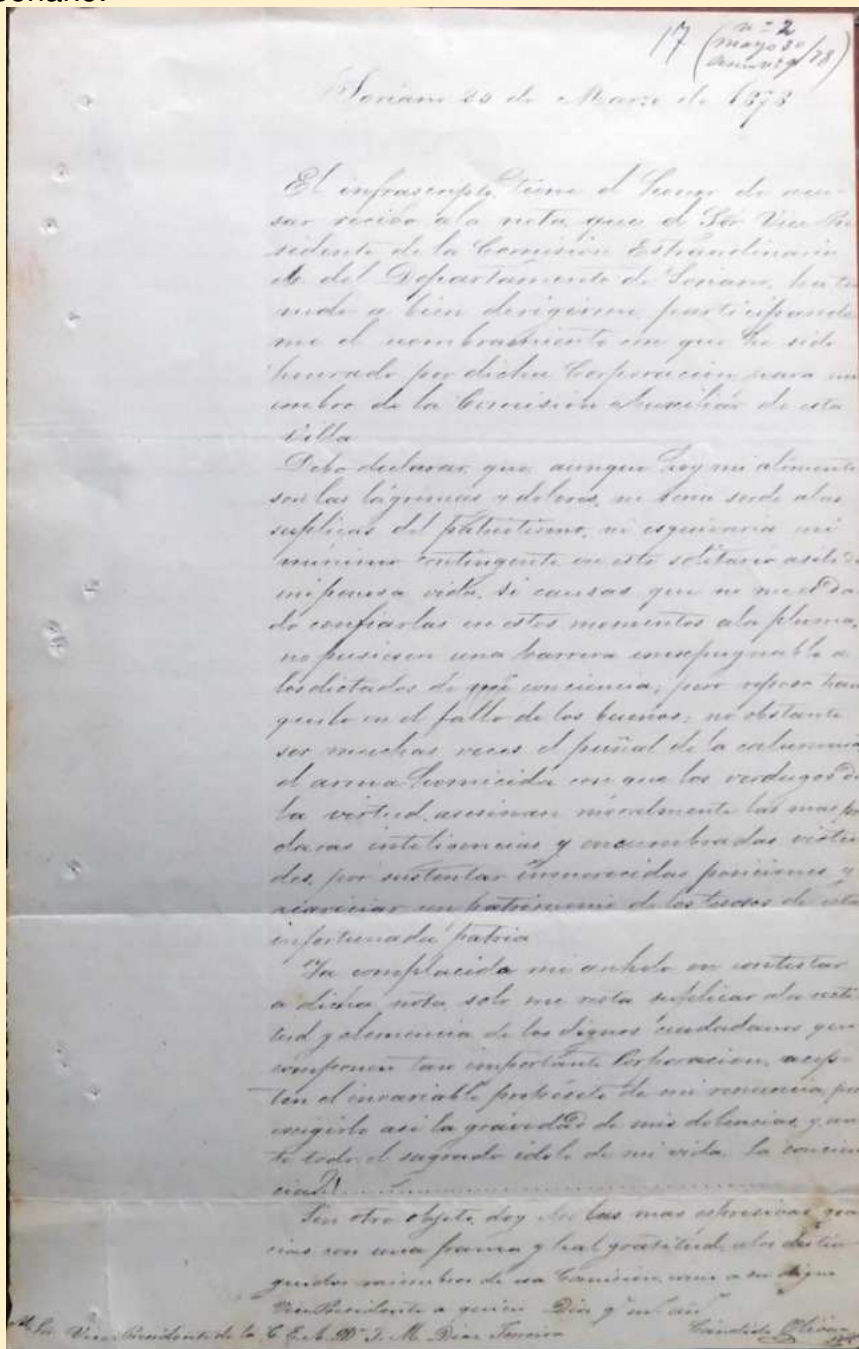 17 (nº 2
mayo 30
/78)
Soriano 20 de Marzo de 1878
El infrascripto, tiene el honor de acu-
sar recibo a la nota, que el Sor Vice Pre
sidente de la Comision Estraordinaria
del Departamento de Soriano, ha te
nido a bien dirigirme, participando
me el nombramiento con que he sido
honrado por dicha Corporacion, para mi
embro de la Comision Auxiliár de esta
Villa
Debo declarar, que, aunque hoy mi alimento
son las lágrimas y dolores, no seria sordo alas
suplicas del patriotismo, ni esquivaria mi
minimo contingente en este solitario asilo de
mi penosa vida, si causas que no me es da
do confiarlas en estos momentos ala pluma,
no pusiesen una barrera inexpugnable a
los dictados de mi conciencia; pero reposo tran
quilo en el fallo de los buenos; no obstante
ser muchas veces el puñal de la calumnia
el arma homicida con que los verdugos de
la virtud, asesinan moralmente las mas
claras inteligencias y encumbradas virtu
des, por sustentar inmerecidas posiciones y
acariciar un patrimonio de los tesoros de esta
infortunada patria
Ya complacido mi anhelo en contestar
a dicha nota, solo me resta suplicar ala recti
tud y clemencia de los dignos ciudadanos que
componen tan importante Corporacion, acep-
ten el invariable propósito de mi renuncia, por
exigirlo asi la gravedad de mis dolencias, y an
te todo, el sagrado idolo de mi vida, la concien
cia!!
Sin otro objeto, doy las mas espresivas gra
cias con una franca y leal gratitud, alos distin
guidos miembros de esa Comision, como a su digno
Vice Presidente a quien Dios g. m. an.
Al Sor Vice Presidente de la C. E. A. Dn J. M. Diaz Ferreira Cándido Olivera